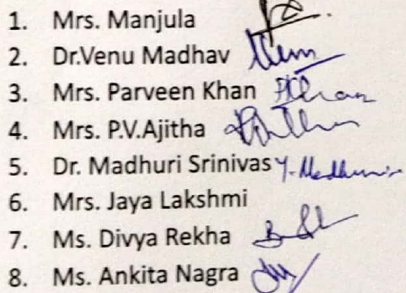 1. Mrs. Manjula
2. Dr.Venu Madhav
3. Mrs. Parveen Khan
4. Mrs. P.V.Ajitha
5. Dr. Madhuri Srinivas
6. Mrs. Jaya Lakshmi
7. Ms. Divya Rekha
8. Ms. Ankita Nagra